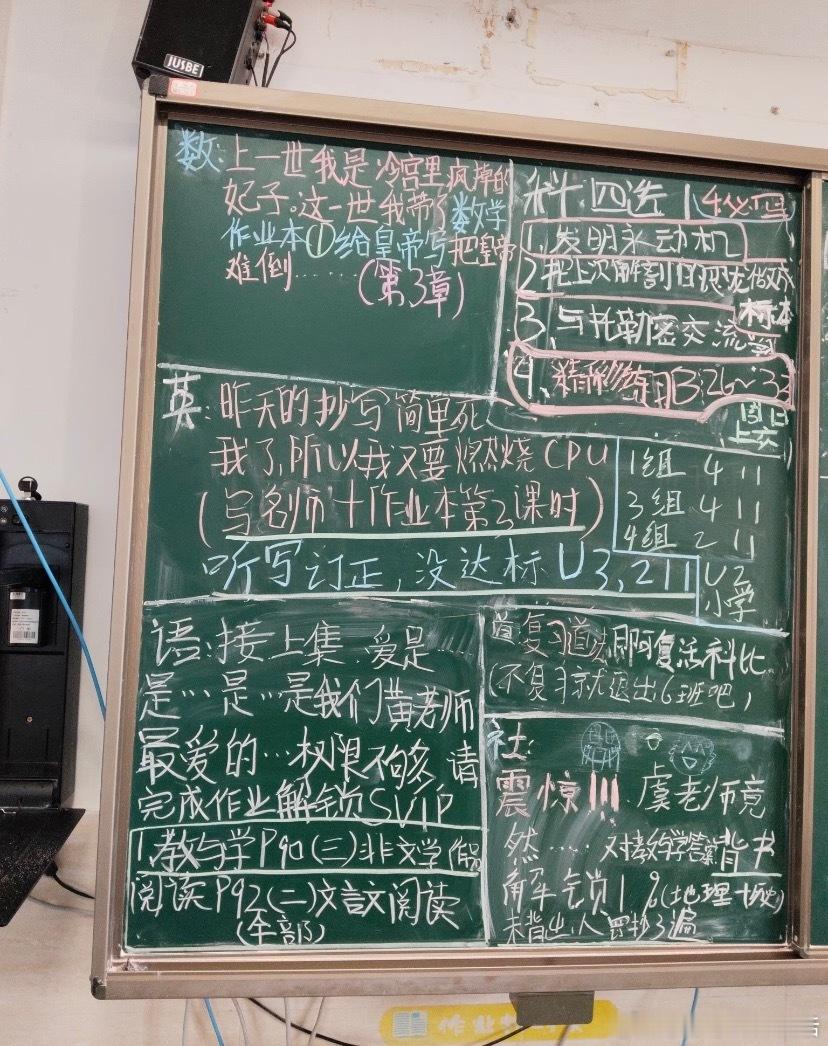 JUSBE
数:上一世我是冷宫里疯掉的
妃子.这一世我带了数学
作业本①给皇帝写把皇帝
难倒……(第3章)
科.四选1 4必选
1.发明永动机
2.把上次解剖的恐龙做成
标本
3、与托勒密交流
4、精彩练习B:26~32
周日
上交
英:昨天的抄写简单死
我了,所以我又要燃烧CPU
(写名师+作业本第3课时)
听写订正,没达标U3,211
1组 4 11
3组 4 11
4组 2 11
U2
小学
语:接上集.爱是…
是…是…是我们黄老师
最爱的…权限不够,请
完成作业解锁SVIP
1.教与学P90(三)非文学
阅读P92(二)文言文阅读
(全部)
道复习道法 复活科比
(不复习就退出6班吧)
社:
震惊!!!虞老师竟
然……又对教与学答案背书
解锁1 (地理十
未背出人 罚抄3遍